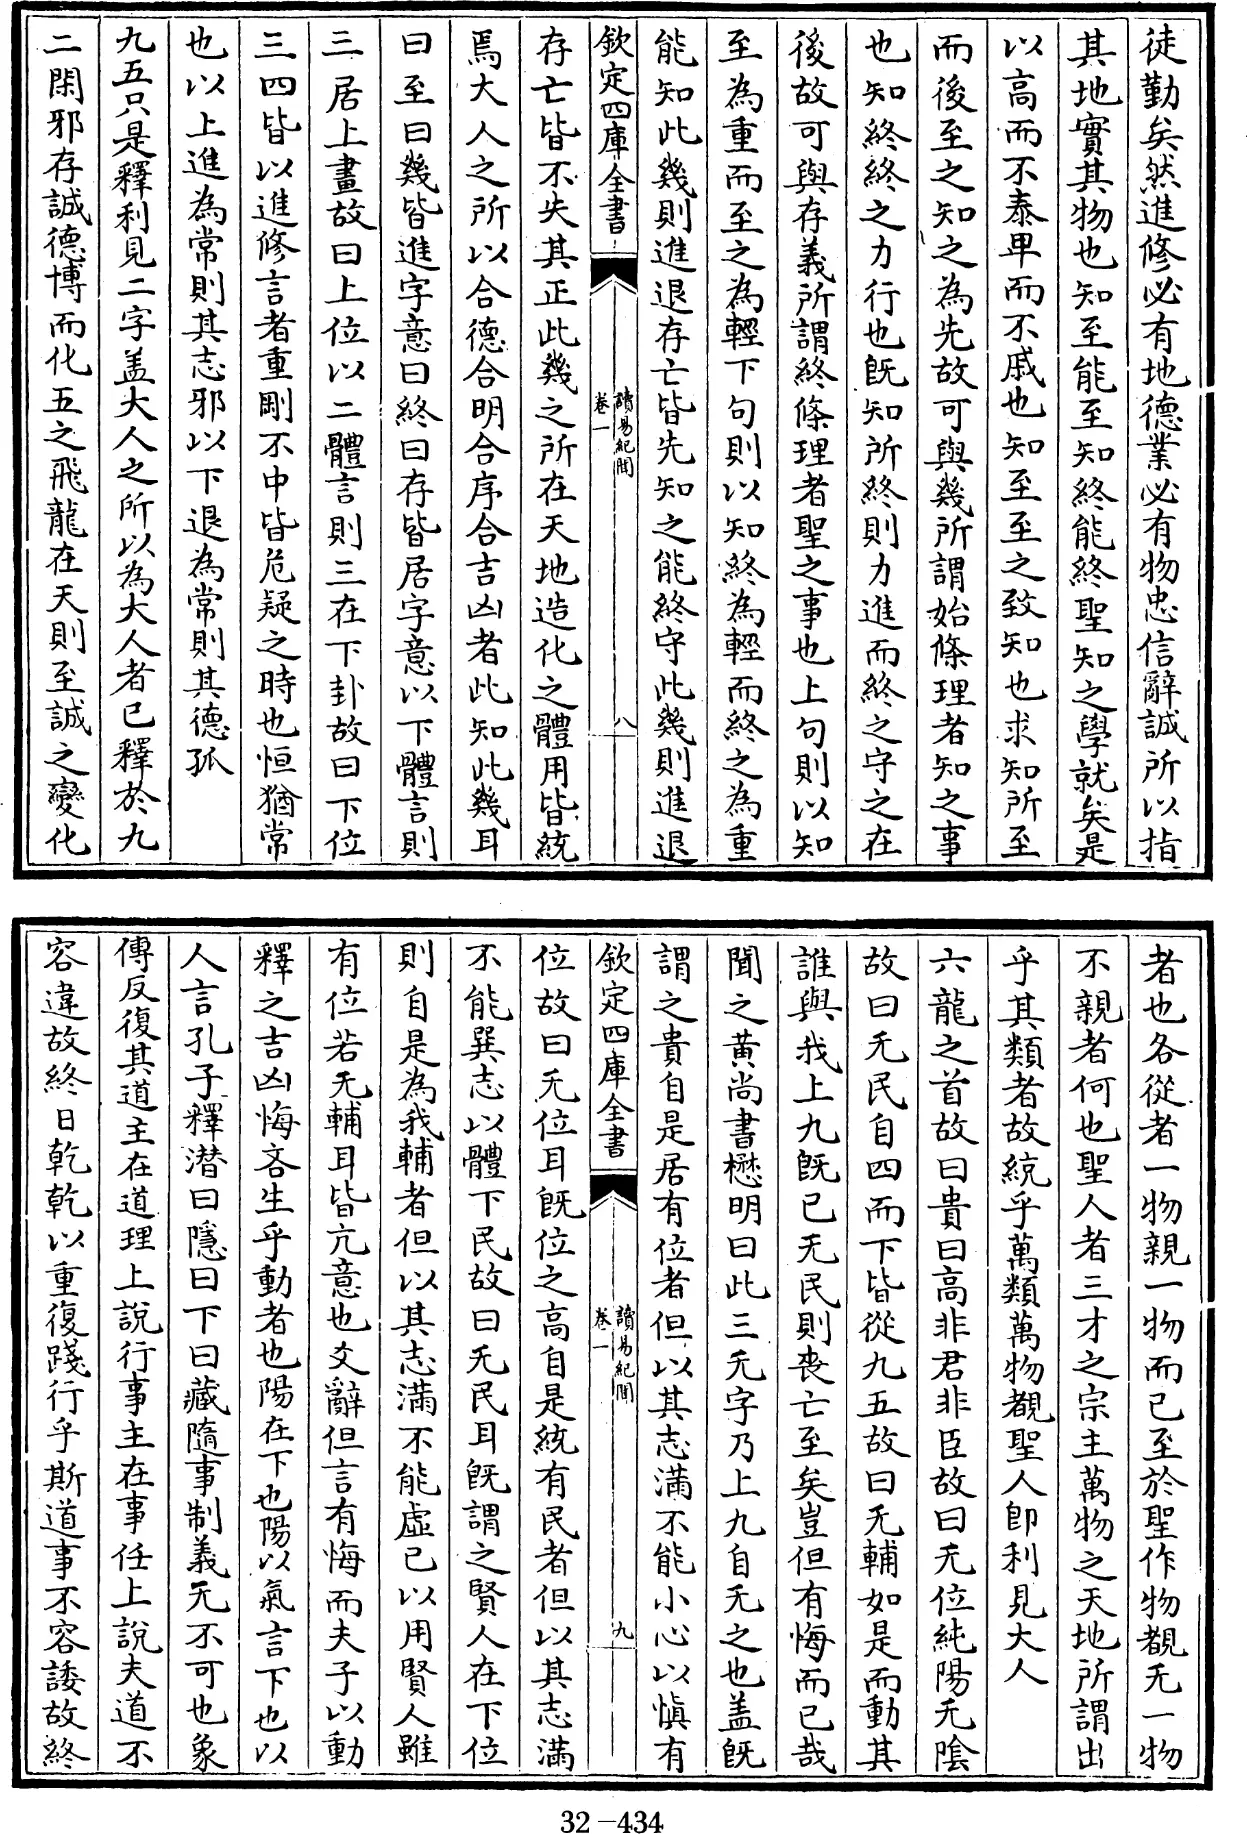 徒勤矣然進修必有地德業必有物忠信辭誠所以指
其地實其物也知至能至知終能終聖知之學就矣是
以高而不泰卑而不戚也知至至之致知也求知所至
而後至之知之為先故可與幾所謂始條理者知之事
也知終終之力行也既知所終則力進而終之守之在
後故可與存義所謂終條理者聖之事也上句則以知
至為重而至之為輕下句則以知終為輕而終之為重
能知此幾則進退存亡皆先知之能終守此幾則進退
欽定四庫全書
讀易紀聞
卷一
八
存亡皆不失其正此幾之所在天地造化之體用皆統
焉大人之所以合德合明合序合吉凶者此知此幾耳
曰至曰幾皆進字意曰終曰存皆居字意以下體言則
三居上畫故曰上位以二體言則三在下卦故曰下位
三四皆以進修言者重剛不中皆危疑之時也恒猶常
也以上進為常則其志邪以下退為常則其德孤
九五只是釋利見二字盖大人之所以為大人者已釋於九
二閑邪存誠德博而化五之飛龍在天則至誠之變化
者也各從者一物親一物而已至於聖作物覩无一物
不親者何也聖人者三才之宗主萬物之天地所謂出
乎其類者故統乎萬類萬物覩聖人即利見大人
六龍之首故曰貴曰高非君非臣故曰无位純陽无陰
故曰无民自四而下皆從九五故曰无輔如是而動其
誰與我上九既已无民則喪亡至矣豈但有悔而已哉
聞之黄尚書懋明曰此三无字乃上九自无之也盖既
謂之貴自是居有位者但以其志滿不能小心以慎有
欽定四庫全書
讀易紀聞
卷一
九
位故曰无位耳既位之高自是統有民者但以其志滿
不能巽志以體下民故曰无民耳既謂之賢人在下位
則自是為我輔者但以其志滿不能虛已以用賢人雖
有位若无輔耳皆亢意也爻辭但言有悔而夫子以動
釋之吉凶悔吝生乎動者也陽在下也陽以氣言下也以
人言孔子釋潜曰隱曰下曰藏隨事制義无不可也象
傳反復其道主在道理上說行事主在事任上說夫道不
容違故終日乾乾以重復踐行乎斯道事不容諉故終
32-434